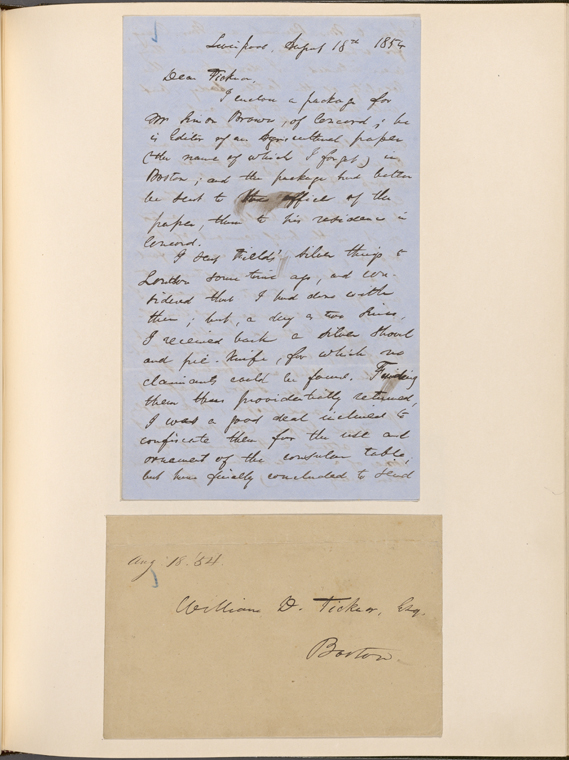 Liverpool, August 18th 1854
Dear Ticknor,
I enclose a package for
Mr Simon Brown, of Concord; he
is Editor of an Agricultural paper
(the name of which I forget,) in
Boston; and the package had better
be sent to the office of the
paper, than to his residence in
Concord.
I sent Fields' silver things to
London some time ago, and con-
sidered that I had done with
them; but, a day or two since,
I received back a silver shovel
and pie-knife, for which no
claimants could be found. Finding
them thus providentially returned,
I was a good deal inclined to
confiscate them for the use and
ornament of the consular table;
but have finally concluded to send
Aug 18. '54.
William D. Ticknor, Esq.
Boston.